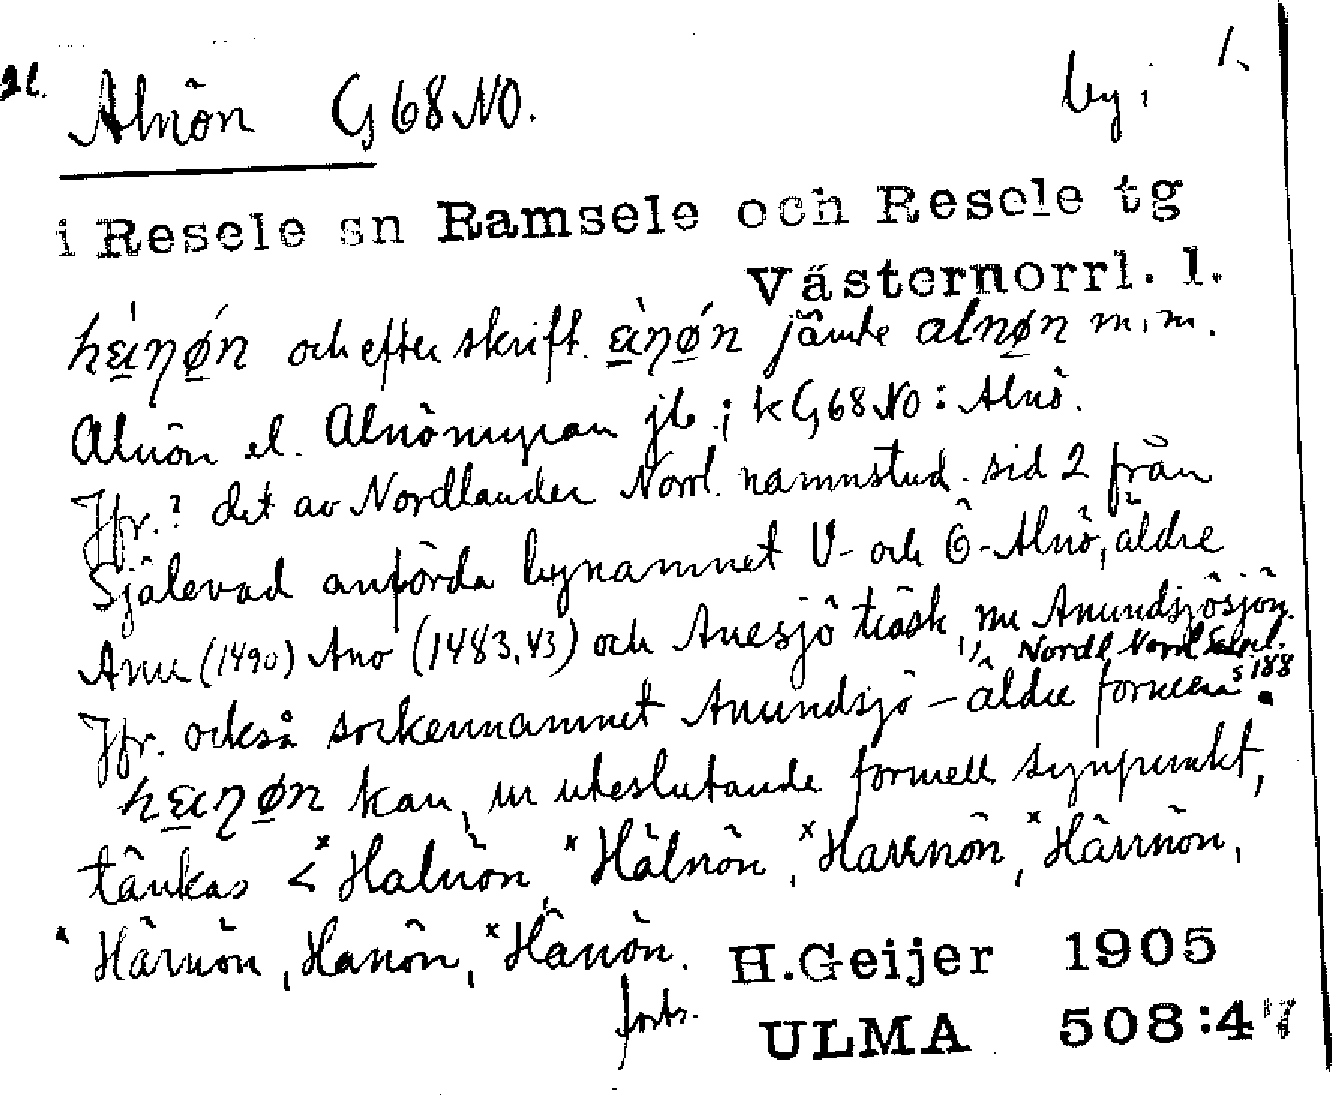 Alnön G 68 NO. by i 1.
i Resele sn Ramsele och Resele tg
Västernorrl. l.
och efter skrift. jämte alnøn m.m.
Alnön el. Alnömyran jb.; k G 68 NO: Alnö.
Jfr.? det av Nordlander Norrl. namnstud. sid 2 från
Själevad anförda bynamnet V- och Ö-Alnö, äldre
(1490) Ano (1483, 43) och Anesjö träsk, nu Anundsjösjön.
Nordl Norrl s 188
Jfr. också sockennamnet Anundsjö – äldre former.
kan, ur uteslutande formell synpunkt,
tänkas < *Halnön, *Hälnön, *Harnön, *Härnön,
*Hårnön, Hanön, *Hänön. H. Geijer 1905
forts. ULMA 508:47